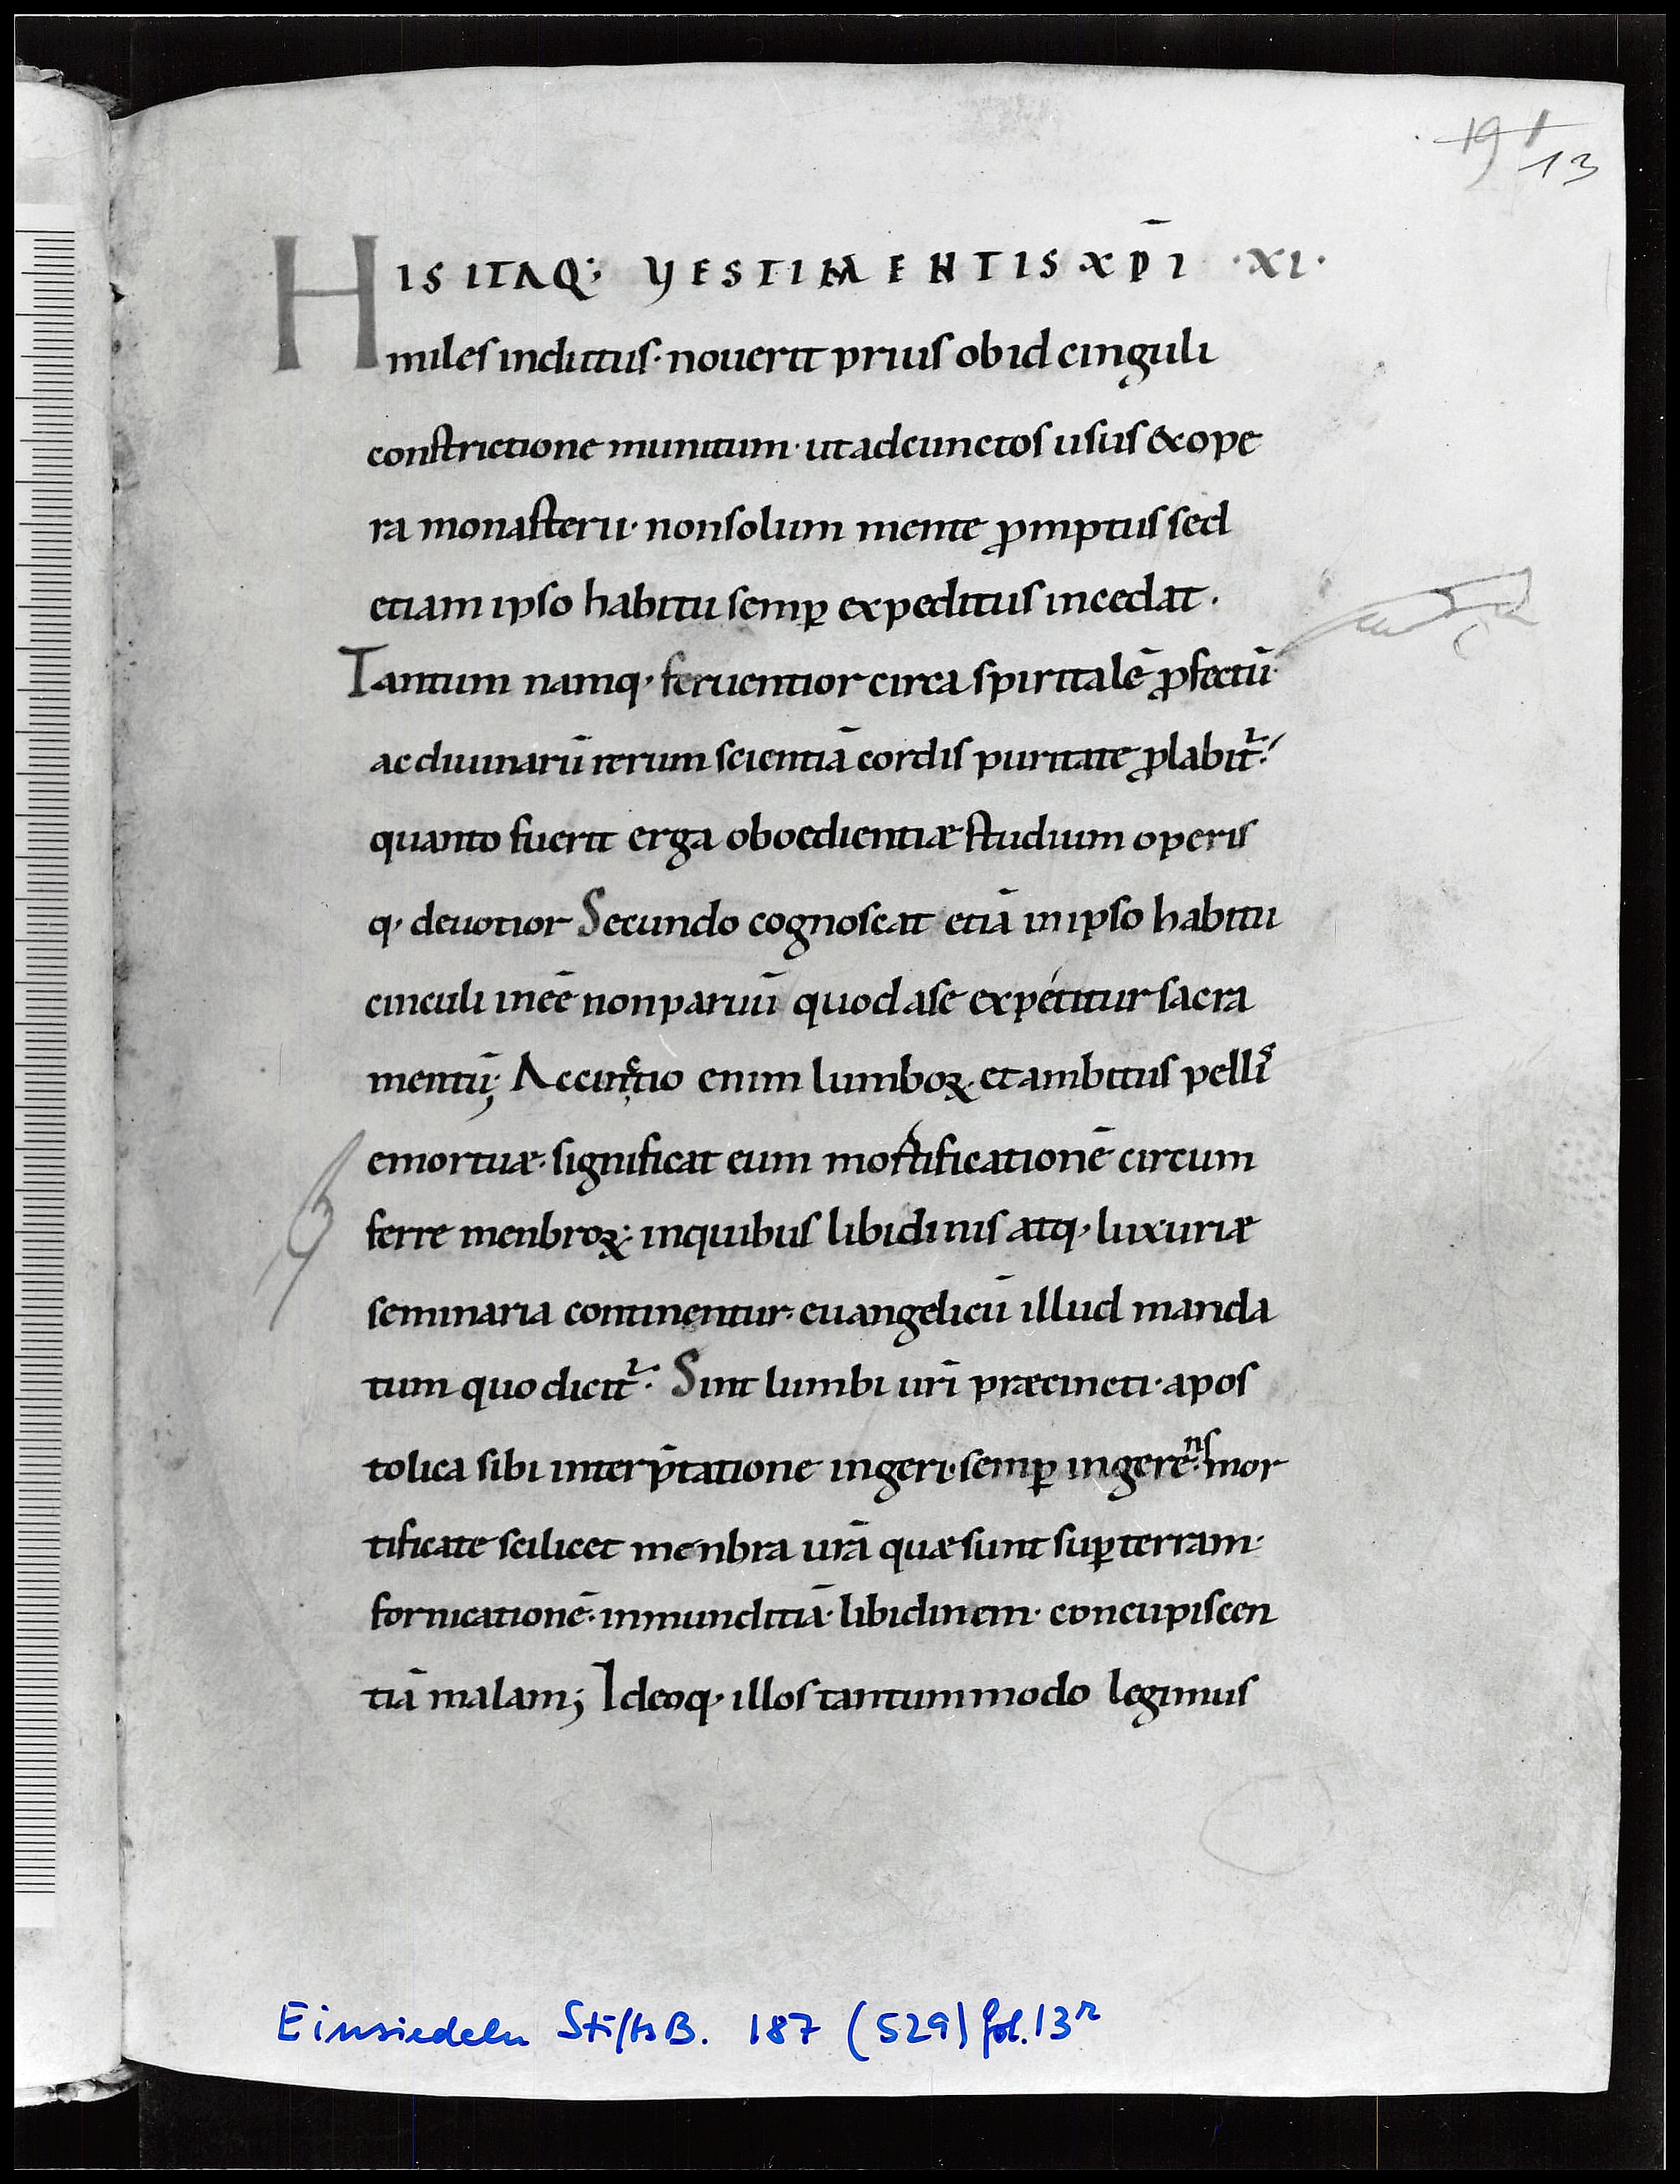 19 1
13
HIS ITAQ; VESTIMENTIS XP̄I ·XI·
miles indutus· nouerit prius ob id cinguli
constrictione munitum· ut ad cunctos usus & ope
ra monasterii· non solum mente ꝓmptus sed
etiam ipso habitu semꝑ expeditus incedat·
Tantum namq· feruentior circa spiritalē ꝓfectū·
ac diuinarū rerum scientiā cordis puritate ꝓlabit᷑·
quanto fuerit erga oboedientiæ studium operis
q· deuotior Secundo cognoscat etiā in ipso habitu
cinculi ineē non paruū quod a se expétitur sacra
mentū; Accinctio enim lumboꝝ· et ambitus pellis
emortuæ· significat eum mortificationē circum
ferre menbroꝝ· in quibus libidinis atq· luxuriæ
seminaria continentur· euangelicū illud manda
tum quo dicit᷑· Sint lumbi ur̄i præcincti· apos
tolica sibi interp̄tatione ingeri· semꝑ ingerēns· mor
tificate scilicet menbra ur̄a quæ sunt suꝑ terram·
fornicationē· inmunditiā· libidinem· concupiscen
tiā malam; Ideoq· illos tantummodo legimus
Einsiedeln StiftsB. 187 (529) fol. 13r